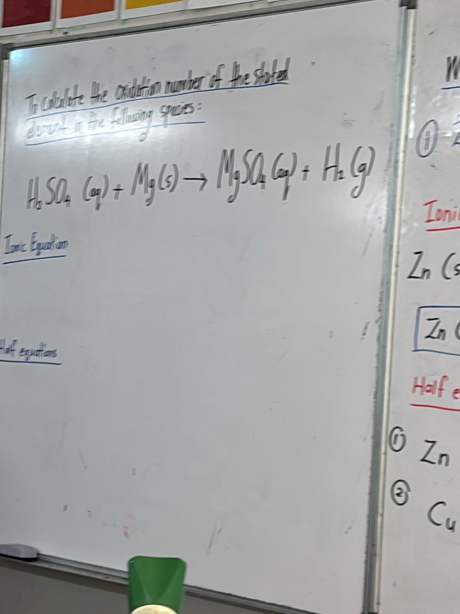 To calculate the oxidation number of the stated
element in the following species:
H₂SO₄ (aq) + Mg(s) → MgSO₄(aq) + H₂(g)
Ionic Equation
Half equations
W
①
Ioni
Zn (s
Zn (
Half e
① Zn
② Cu